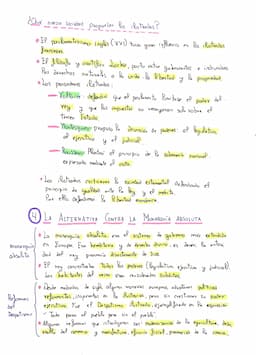 ¿Qué nueva sociedad proponían los ilustrados?
• El parlamentarismo inglés (XVII) tuvo gran influencia en los ilustrados franceses.
• El filósofo y científico Locke, pacto entre gobernantes e individuos
los derechos naturales a la vida, la libertad y la propiedad.
• Los pensadores ilustrados:
Voltaire defendía que el parlamento limitase el poder del
rey y que los impuestos no recayeran solo sobre el
tercer Estado.
Montesquieu propuso la división de poderes: el legislativo,
el ejecutivo y el judicial.
Rousseau planteó el principio de la soberanía nacional
expresada mediante el voto.
• Los ilustrados la sociedad estamental defendiendo el
principio de igualdad ante la ley y el mérito.
Por ello defendían la libertad económica.
4 LA ALTERNATIVA CONTRA LA MONARQUÍA ABSOLUTA
monarquía
absoluta
• La monarquía absoluta era el sistema de gobierno más extendido
en Europa. Era hereditaria y de derecho divino, es decir, la autori-
dad del rey provenía directamente de Dios.
• El rey concentraba todos los poderes (legislativo, ejecutivo y judicial).
Los habitantes del reino eran considerados súbditos.
Reformas
del
Despotismo
• Desde mediados de siglo algunos monarcas europeos adoptaron políticas
reformistas, inspiradas en la ilustración, pero sin cuestionar su poder.
ejecutivo. Fue el Despotismo ilustrado, ejemplificado en la expresión
"Todo para el pueblo pero sin el pueblo".
• Algunas reformas que introdujeron son: modernización de la agricultura, desa-
rrollo del comercio y manufacturas, eficacia fiscal, promoción de la ciencia.